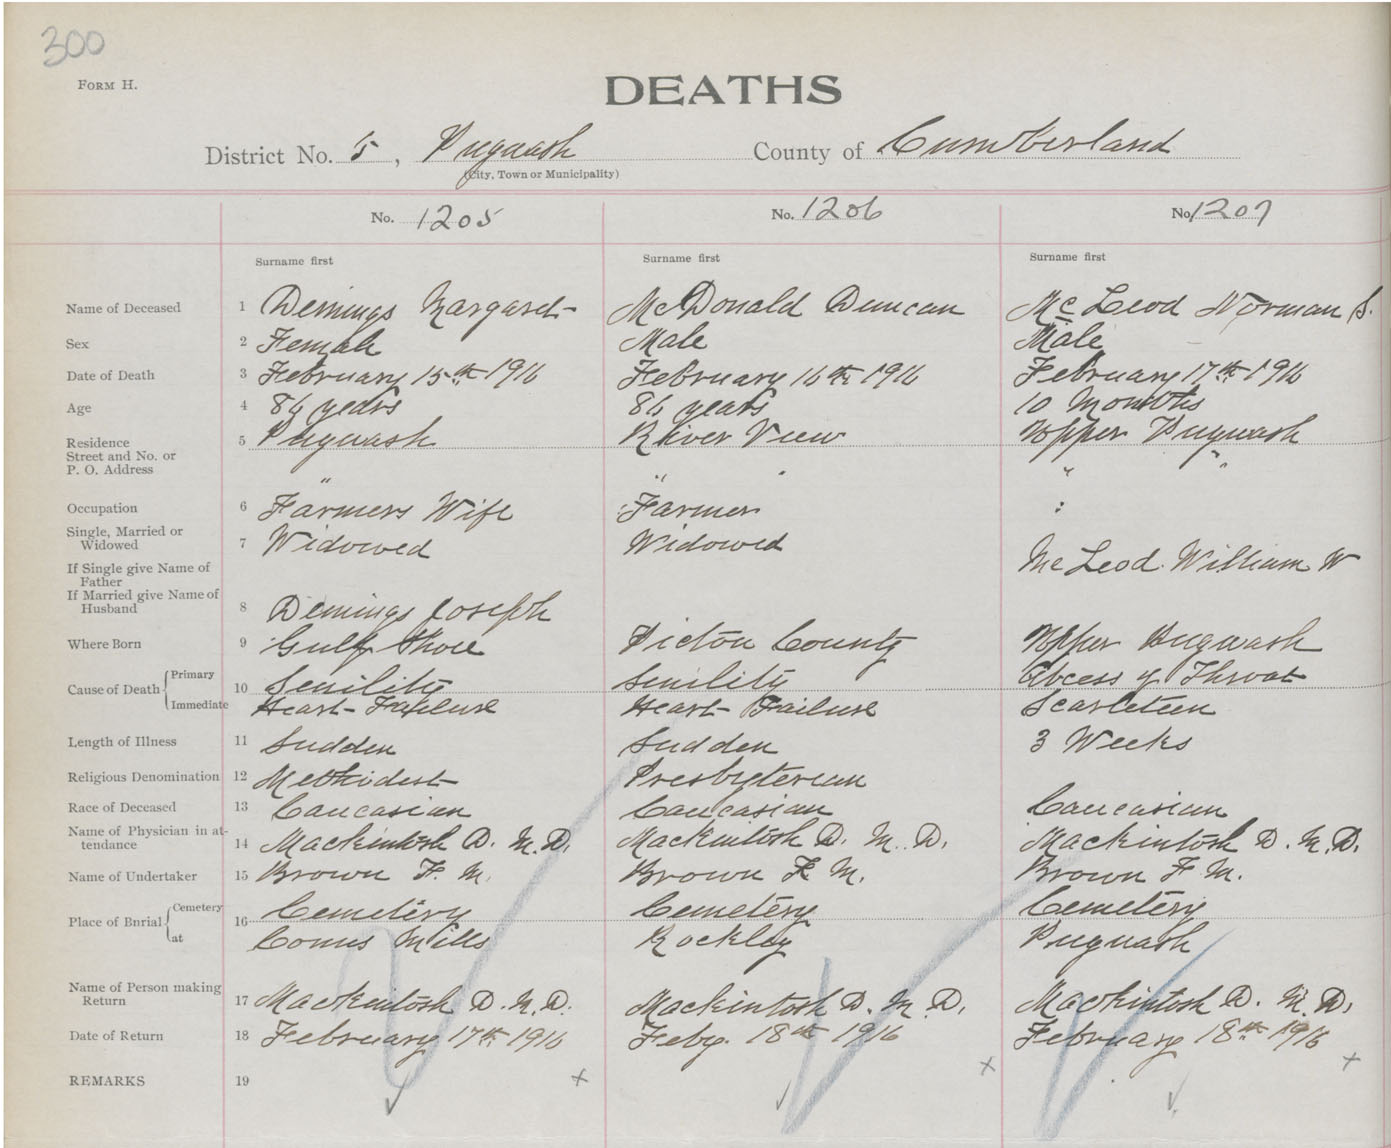 300
FORM H.
DEATHS
District No. 5, Pugwash County of Cumberland
(City, Town or Municipality)
No. 1205 No. 1206 No. 1207
Surname first Surname first Surname first
Name of Deceased 1 Demings Margaret McDonald Duncan McLeod Norman S.
Sex 2 Female Male Male
Date of Death 3 February 15th 1916 February 16th 1916 February 17th 1916
Age 4 86 years 86 years 10 Months
Residence 5 Pugwash River View Upper Pugwash
Street and No. or
P. O. Address " " " " "
Occupation 6 Farmers Wife Farmer :
Single, Married or
Widowed 7 Widowed Widowed
If Single give Name of
Father McLeod. William W
If Married give Name of
Husband 8 Demings Joseph
Where Born 9 Gulf Shore Pictou County Upper Pugwash
Cause of Death { Primary 10 Senility Senility Abcess of Throat
Immediate Heart Failure Heart Failure Scarleteen
Length of Illness 11 Sudden Sudden 3 Weeks
Religious Denomination 12 Methodest Presbyterian
Race of Deceased 13 Caucasian Caucasian Caucasian
Name of Physician in at-
tendance 14 Mackintosh D. M.D. Mackintosh D. M.D. Mackintosh D. M.D.
Name of Undertaker 15 Brown F. M. Brown F. M. Brown F. M.
Place of Bnrial { Cemetery 16 Cemetery Cemetery Cemetery
at Conns Mills Rockley Pugwash
Name of Person making
Return 17 Mackintosh D. M.D. Mackintosh D. M.D. Mackintosh D. M.D.
Date of Return 18 February 17th 1916 Feby. 18th 1916 February 18th 1916
REMARKS 19 x x x